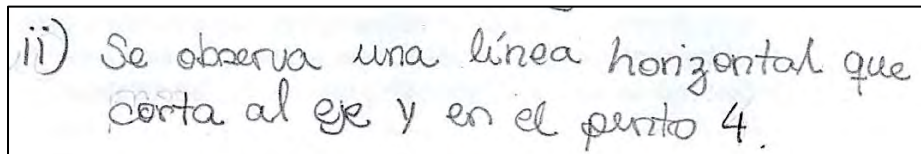 ii) Se observa una línea horizontal que
corta al eje y en el punto 4.